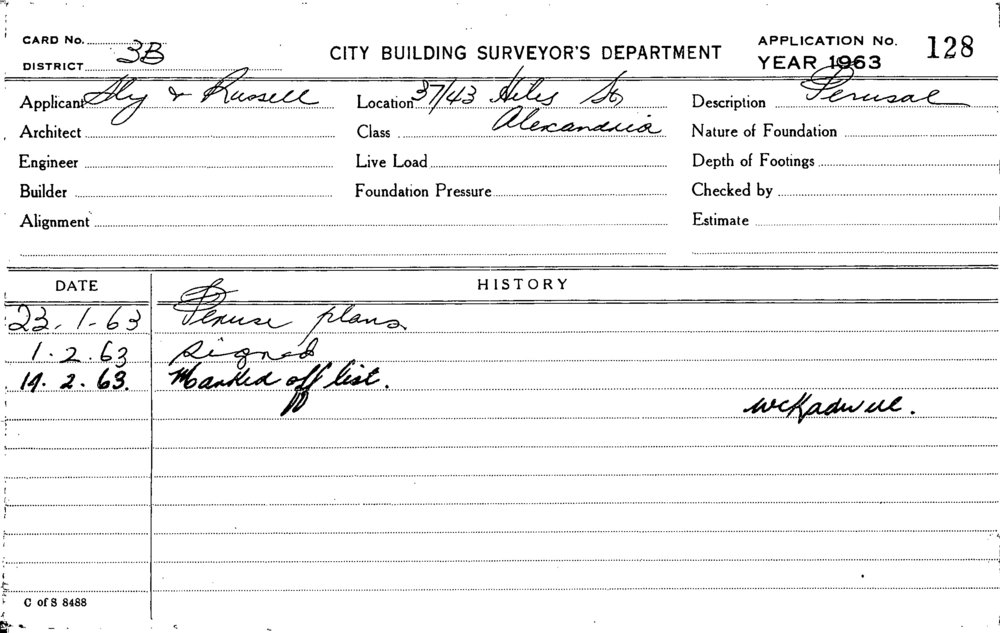 CARD No.
CITY BUILDING SURVEYOR'S DEPARTMENT
APPLICATION No. 128
DISTRICT 3B
YEAR 1963
Applicant Sly & Russell
Location 37/43 Hiles St
Alexandria
Description Perusal
Architect
Class
Nature of Foundation
Engineer
Live Load
Depth of Footings
Builder
Foundation Pressure
Checked by
Alignment
Estimate
DATE
HISTORY
23.1.63 Peruse plans
1.2.63 signed
14.2.63. Marked off list.
C of S 8488